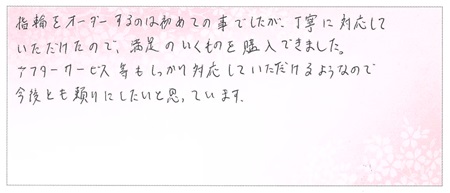 指輪をオーダーするのは初めての事でしたが、丁寧に対応して
いただけたので、満足のいくものを購入できました。
アフターサービス等もしっかり対応していただけるようなので
今後とも頼りにしたいと思っています。